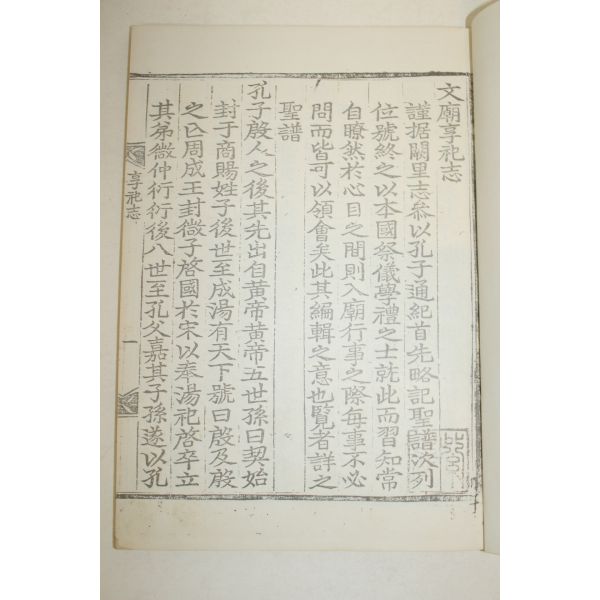 文廟享祀志
謹据闕里志叅以孔子通紀首先略記聖譜次列
位號終之以本國祭儀學禮之士就此而習知常
自瞭然於心目之間則入廟行事之際每事不必
問而皆可以領會矣此其編輯之意也覽者詳之
聖譜
孔子殷人之後其先出自黃帝黃帝五世孫曰契始
封于商賜姓子後世至成湯有天下號曰殷及殷
之亡周成王封微子啓國於宋以奉湯祀啓卒立
其弟微仲衍衍後八世至孔父嘉其子孫遂以孔
享祀志
一